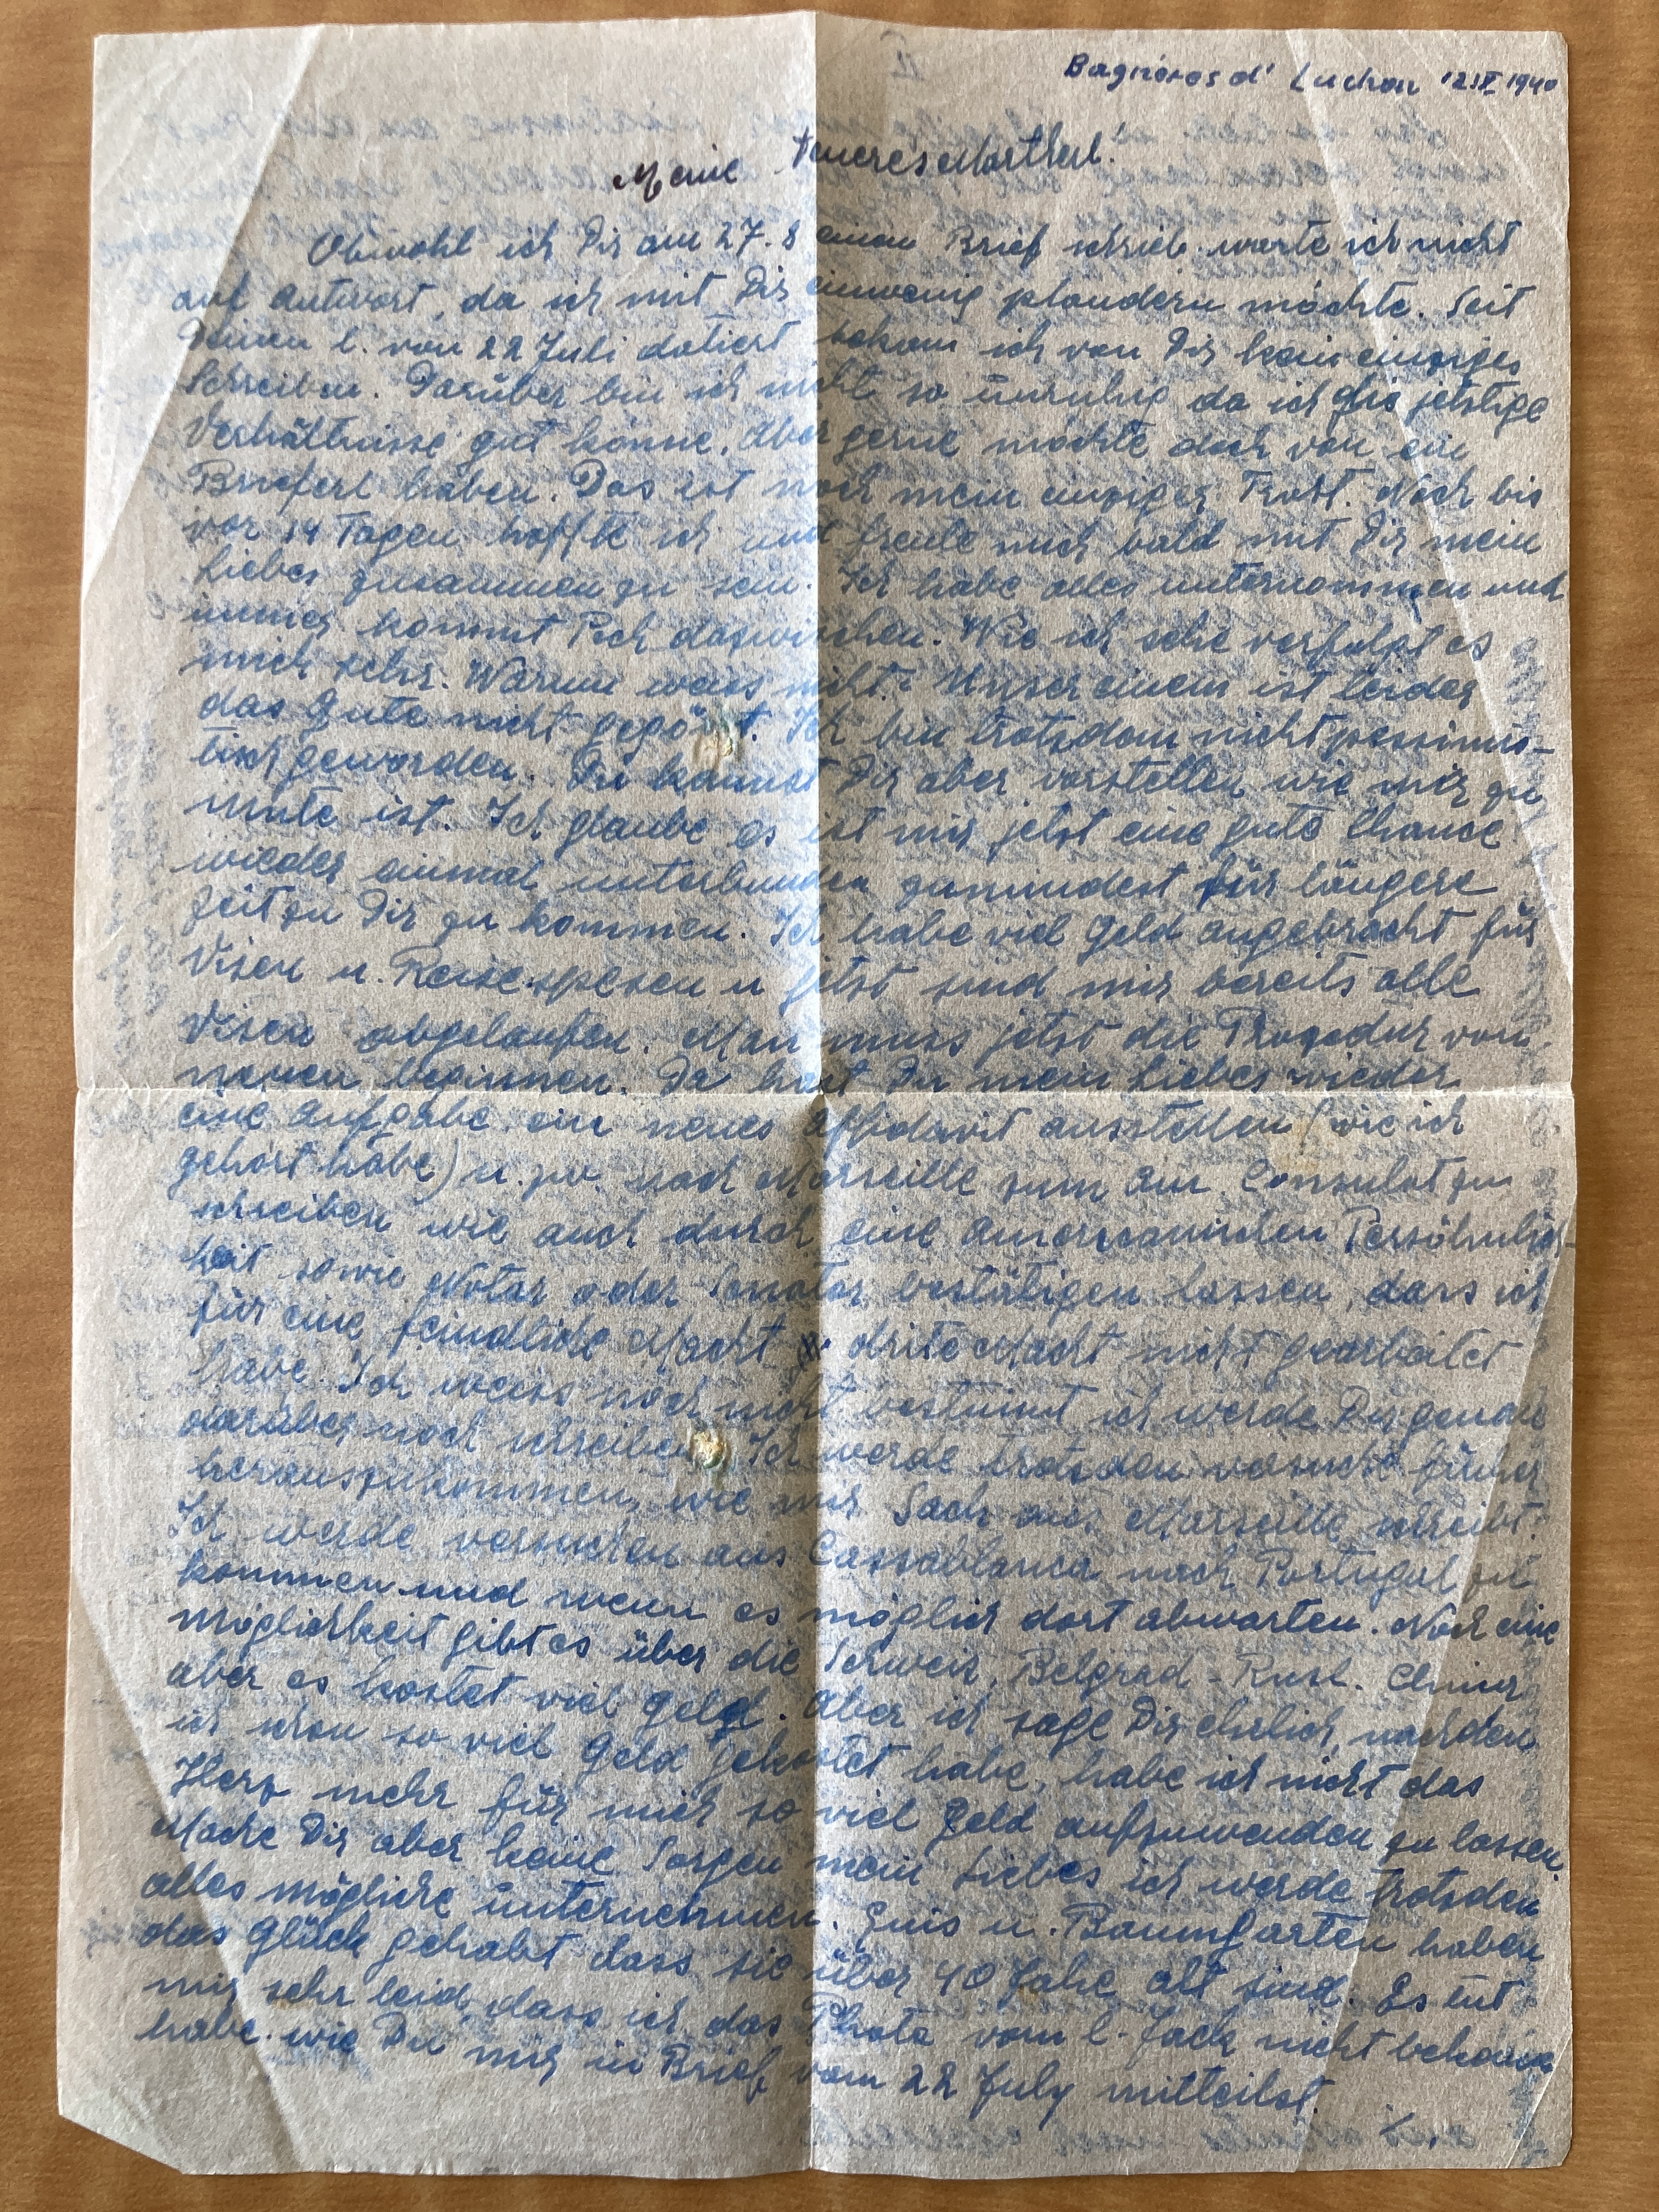 Bagnères d' Luchon 12.IX 1940
Meine teueres Martherl!
Obwohl ich Dir am 27.8 einen Brief schrieb warte ich nicht
auf Antwort, da ich mit Dir einwenig plaudern möchte. Seit
Deinen l. von 22 Juli datiert bekam ich von Dir kein einziges
Schreiben. Darüber bin ich nicht so unruhig da ich die jetztige
Verhältnisse gut könne. Aber gerne möchte doch von ein
Brieferl haben. Das ist noch mein einziger Trost. Noch bis
vor 14 Tagen hoffte ich und freute mich bald mit Dir mein
Liebes zusammen zu sein. Ich habe alles unternommen und
immer kommt Pech dazwischen. Wie ich sehe verfolgt es
mich sehr. Warum weiss nicht? Unser einem ist leider
das Gute nicht gegönnt. Ich bin trotzdem nicht pessimis-
tisch geworden. Du kannst Dir aber vorstellen wie mir zu
mute ist. Ich glaube es ist mir jetzt eine gute Chance
wieder einmal unterbunden zumindest für längere
Zeit zu Dir zu kommen. Ich habe viel Geld angebracht für
Visen u. Reisespesen u jetzt sind mir bereits alle
Visen abgelaufen. Man muss jetzt die Prozedur von
neuen beginnen. Da hast Du mein Liebes wieder
eine Aufgabe ein neues Affidavit ausstellen (wie ich
gehört habe) u. zw. nach Marseille zum am Consulat zu
schreiben wie auch durch eine amerikanischen Persöhnlich-
keit sowie Notar oder Senator bestätigen lassen, dass ich
für eine feindliche Macht dritte Macht nicht gearbeitet
habe. Ich weiss noch nicht bestimmt ich werde Dir genau
darüber noch schreiben. Ich werde trotzdem versuche früher
herauszukommen, wie mir Sach aus Marseille schreibt.
Ich werde versuchen aus Cassablanca nach Portugal zu
kommen und wenn es möglich dort abwarten. Noch eine
Möglichkeit gibt es über die Schweiz, Belgrad - Rusl. China
aber es kostet viel Geld. Aber ich sage Dir ehrlich, nachdem
ich schon so viel Geld gekostet habe, habe ich nicht das
Herz mehr für mich so viel Geld aufzuwenden zu lassen.
Mache Dir aber keine Sorgen mein Liebes ich werde trotzdem
alles mögliche unternehmen. u. Baumgarten haben
das Glück gehabt dass sie über 40 Jahe alt sind. Es tut
mir sehr leid, dass ich das Photo vom l. Jack nicht bekomen
habe. wie Du mir in Brief vom 22 July mitteilst.